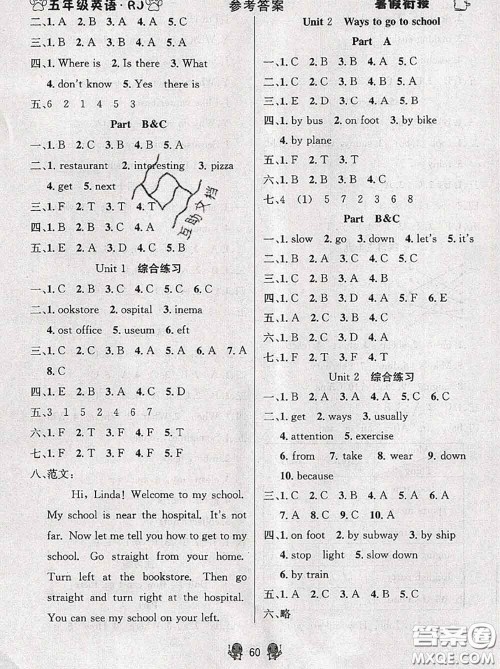 五年级英语·RJ 参考答案 暑假衔接
二、1. C 2. B 3. A 4. A 5. C
四、1. Where is 2. Is there 3. What
4. don't know 5. Yes there is
五、6 2 1 4 5 3
Part B&C
一、1. B 2. A 3. C 4. B 5. A
二、1. restaurant 2. interesting 3. pizza
4. get 5. next
三、1. F 2. T 3. F 4. T
四、1. B 2. A 3. C 4. C
五、1. E 2. B 3. D 4. A 5. C
Unit 1 综合练习
一、1. C 2. C 3. B 4. B 5. A
二、1. ookstore 2. ospital 3. inema
4. ost office 5. useum 6. eft
三、1. C 2. C 3. B 4. A 5. A 6. A 7. A
8. C
四、1. D 2. B 3. A 4. E 5. C
五、3 1 5 2 4 6 7
六、1. F 2. T 3. F 4. F 5. T
七、1. F 2. T 3. T 4. F 5. F
八、范文:
Hi, Linda! Welcome to my school.
My school is near the hospital. It's not
far. Now let me tell you how to get to my
school. Go straight from your home.
Turn left at the bookstore. Then go
straight and turn right at the hospital.
You can see my school on your left.
Unit 2 Ways to go to school
Part A
一、1. C 2. B 3. C 4. A
二、1. C 2. B 3. B 4. A 5. A
三、1. C 2. A 3. B 4. A 5. C
四、1. by bus 2. on foot 3. by bike
4. by plane
五、1. C 2. C 3. A 4. B 5. C
六、1. B 2. F 3. T 4. T
七、4 (1) 5 7 2 3 6 8
Part B&C
一、1. slow 2. go 3. down 4. let's 5. it's
二、1. B 2. A 3. B 4. C 5. C
三、1. C 2. A 3. B 4. C 5. A
四、1. D 2. A 3. B 4. C 5. F 6. E
五、1. F 2. T 3. T 4. F
Unit 2 综合练习
一、1. C 2. B 3. B 4. A 5. C
二、1. get 2. ways 3. usually
4. attention 5. exercise
6. from 7. take 8. wear 9. down
10. because
三、1. C 2. B 3. A 4. C 5. A
四、1. on foot 2. subway 3. by ship
4. stop light 5. slow down
6. by train
五、1. C 2. A 3. D 4. B 5. E
六、略
60
互助文档
答案圈
MXQE.COM